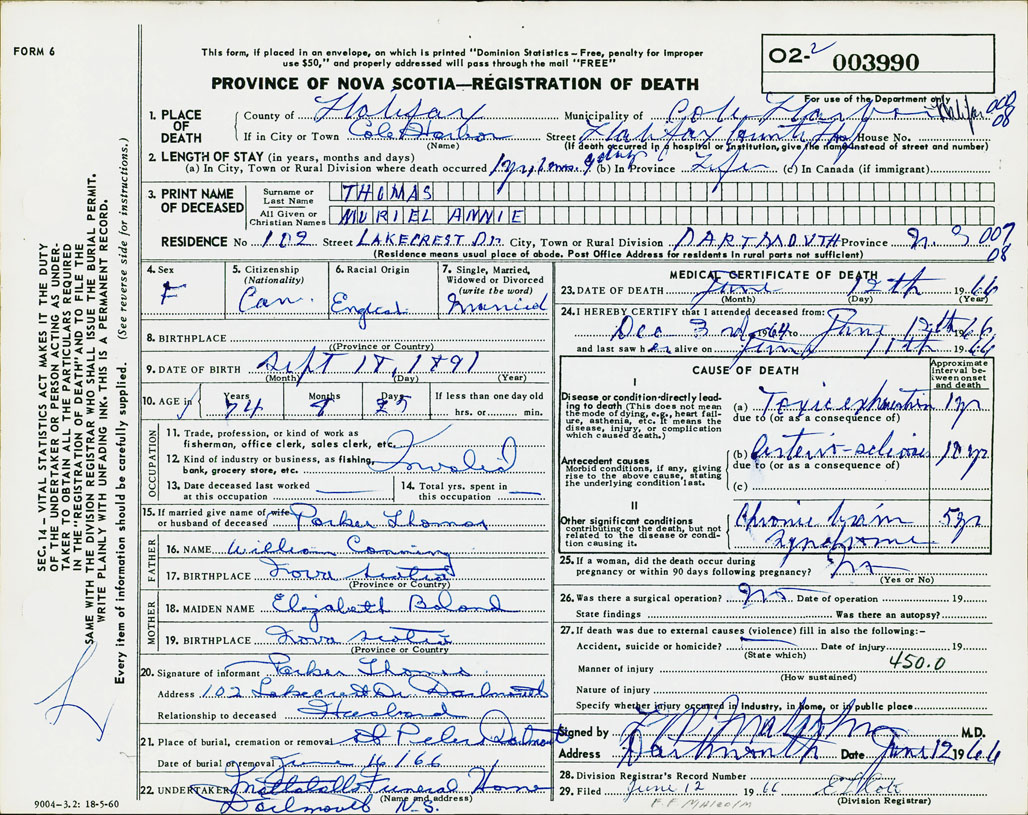 FORM 6
This form, if placed in an envelope, on which is printed "Dominion Statistics – Free, penalty for improper
use $50," and properly addressed will pass through the mail "FREE"
PROVINCE OF NOVA SCOTIA—REGISTRATION OF DEATH
02-2 003990
For use of the Department only
1. PLACE OF DEATH
County of Halifax Municipality of Cole Harbor Halifax 000 08
If in City or Town Cole Harbor Street Halifax County House No.
(Name) (If death occurred in a hospital or institution, give the name instead of street and number)
2. LENGTH OF STAY (in years, months and days)
(a) In City, Town or Rural Division where death occurred (b) In Province Life (c) In Canada (if immigrant)
3. PRINT NAME OF DECEASED
Surname or Last Name THOMAS
All Given or Christian Names MURIEL ANNIE
RESIDENCE No 102 Street LAKECREST Dr. City, Town or Rural Division DARTMOUTH Province N. S 007 08
(Residence means usual place of abode. Post Office Address for residents in rural parts not sufficient)
4. Sex F
5. Citizenship (Nationality) Can.
6. Racial Origin English
7. Single, Married, Widowed or Divorced (write the word) Married
8. BIRTHPLACE
(Province or Country)
9. DATE OF BIRTH Sept 18, 1891
(Month) (Day) (Year)
10. AGE in Years 74 Months 8 Days 25 If less than one day old
hrs. or min.
OCCUPATION
11. Trade, profession, or kind of work as
fisherman, office clerk, sales clerk, etc.
12. Kind of industry or business, as fishing,
bank, grocery store, etc. Invalid
13. Date deceased last worked
at this occupation
14. Total yrs. spent in
this occupation
15. If married give name of wife
or husband of deceased Parker Thomas
FATHER
16. NAME William Conning
17. BIRTHPLACE Nova Scotia
(Province or Country)
MOTHER
18. MAIDEN NAME Elizabeth Boland
19. BIRTHPLACE Nova Scotia
(Province or Country)
20. Signature of informant Parker Thomas
Address 102 Lakecrest Dr Dartmouth
Relationship to deceased Husband
21. Place of burial, cremation or removal St Peters Dartmouth
Date of burial or removal June /66
22. UNDERTAKER Funeral Home
(Name and address)
Dartmouth N.S.
MEDICAL CERTIFICATE OF DEATH
23. DATE OF DEATH June 12th 1966
(Month) (Day) (Year)
24. I HEREBY CERTIFY that I attended deceased from:
Dec 3rd 1964 to June 12th 1966
and last saw her alive on June 11th 1966
CAUSE OF DEATH
Approximate interval between onset and death
I
Disease or condition directly leading
to death (This does not mean
the mode of dying, e.g., heart failure,
asthenia, etc. It means the
disease, injury, or complication
which caused death.)
(a) Toxic exhaustion 1 yr
due to (or as a consequence of)
Antecedent causes
Morbid conditions, if any, giving
rise to the above cause, stating
the underlying condition last.
(b) Arterio-sclerosis 10 yr
due to (or as a consequence of)
(c)
II
Other significant conditions
contributing to the death, but not
related to the disease or condition
causing it.
Chronic brain 5 yr
syndrome
25. If a woman, did the death occur during
pregnancy or within 90 days following pregnancy? No
(Yes or No)
26. Was there a surgical operation? No Date of operation 19
State findings Was there an autopsy?
27. If death was due to external causes (violence) fill in also the following:–
Accident, suicide or homicide? Date of injury 19
(State which)
450.0
Manner of injury
(How sustained)
Nature of injury
Specify whether injury occurred in industry, in home, or in public place
Signed by M.D.
Address Dartmouth Date June 12 1966
28. Division Registrar's Record Number
29. Filed June 12 1966
(Division Registrar)
F F Malcolm
SEC. 14 – VITAL STATISTICS ACT MAKES IT THE DUTY
OF THE UNDERTAKER OR PERSON ACTING AS UNDERTAKER
TO OBTAIN ALL THE PARTICULARS REQUIRED
IN THE "REGISTRATION OF DEATH" AND TO FILE THE
SAME WITH THE DIVISION REGISTRAR WHO SHALL ISSUE THE BURIAL PERMIT.
WRITE PLAINLY WITH UNFADING INK. THIS IS A PERMANENT RECORD.
Every item of information should be carefully supplied. (See reverse side for instructions.)
9004-3.2: 18-5-60